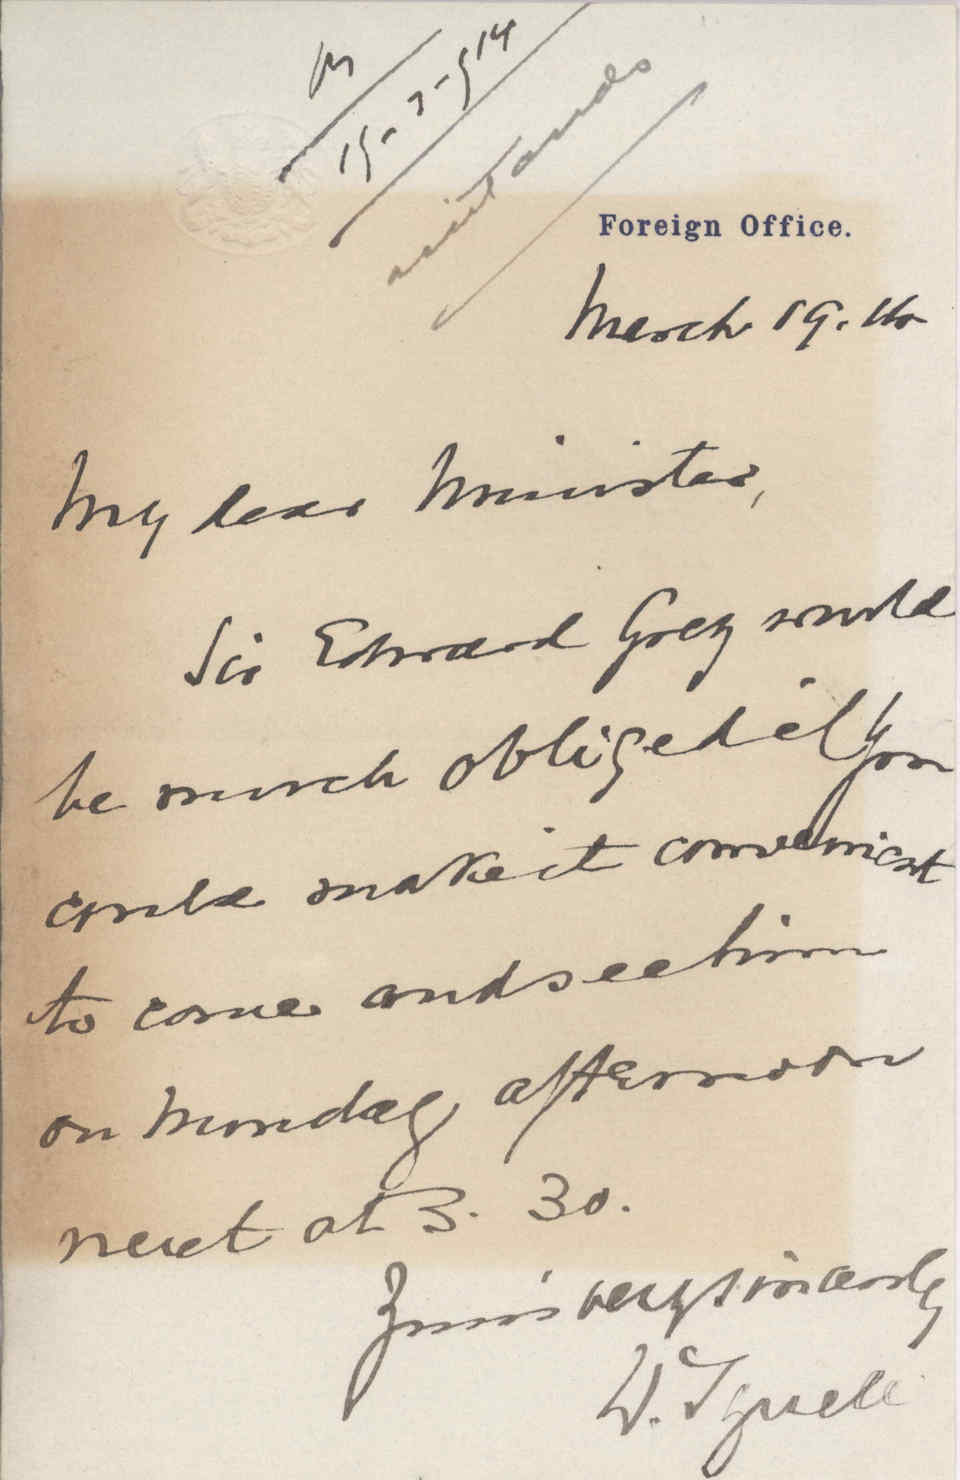 Foreign Office.
March 19. 14
My dear Minister,
Sir Edward Grey would
be much obliged if you
could make it convenient
to come and see him
on Monday afternoon
next at 3. 30.
Yours very sincerely
W. Tyrrell